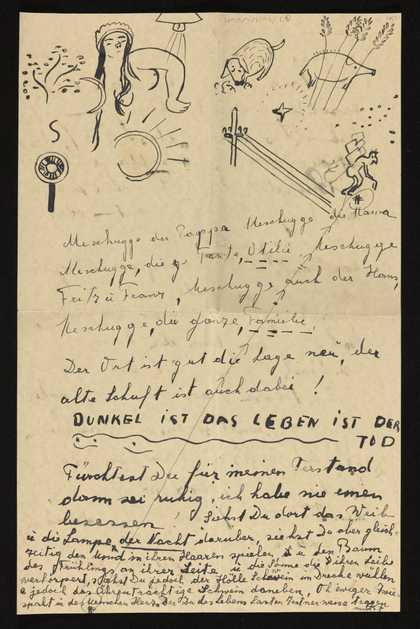 Meschugge der Pappa Meschugge die Mama
Meschugge, die g Tante, Otilie Meschugge
Fritz u Franz, Meschugge auch der Hans,
Meschugge, die ganze, Familie
Der Ort ist gut die Lage neu, der
alte Schuft ist auch dabei !
DUNKEL IST DAS LEBEN IST DER
TOD
Fürchtest Du für meinen Verstand
dann sei ruhig, ich habe nie einen
besessen ! Siehst Du dort das Weib
u die Lampe der Nacht darüber, siehst Du aber gleich-
zeitig den Mond in ihren Haaren spielen u den Baum
des Frühlings an ihrer Seite u die Sonne die ihren Leibe
verkörpert, siehst Du jedoch der Hölle Schwein im Drecke wühlen
u jedoch das Ährenträchtige Schwein daneben, Oh ewiger Zwie-
spalt in des Menschen Herz. Du des Lebens